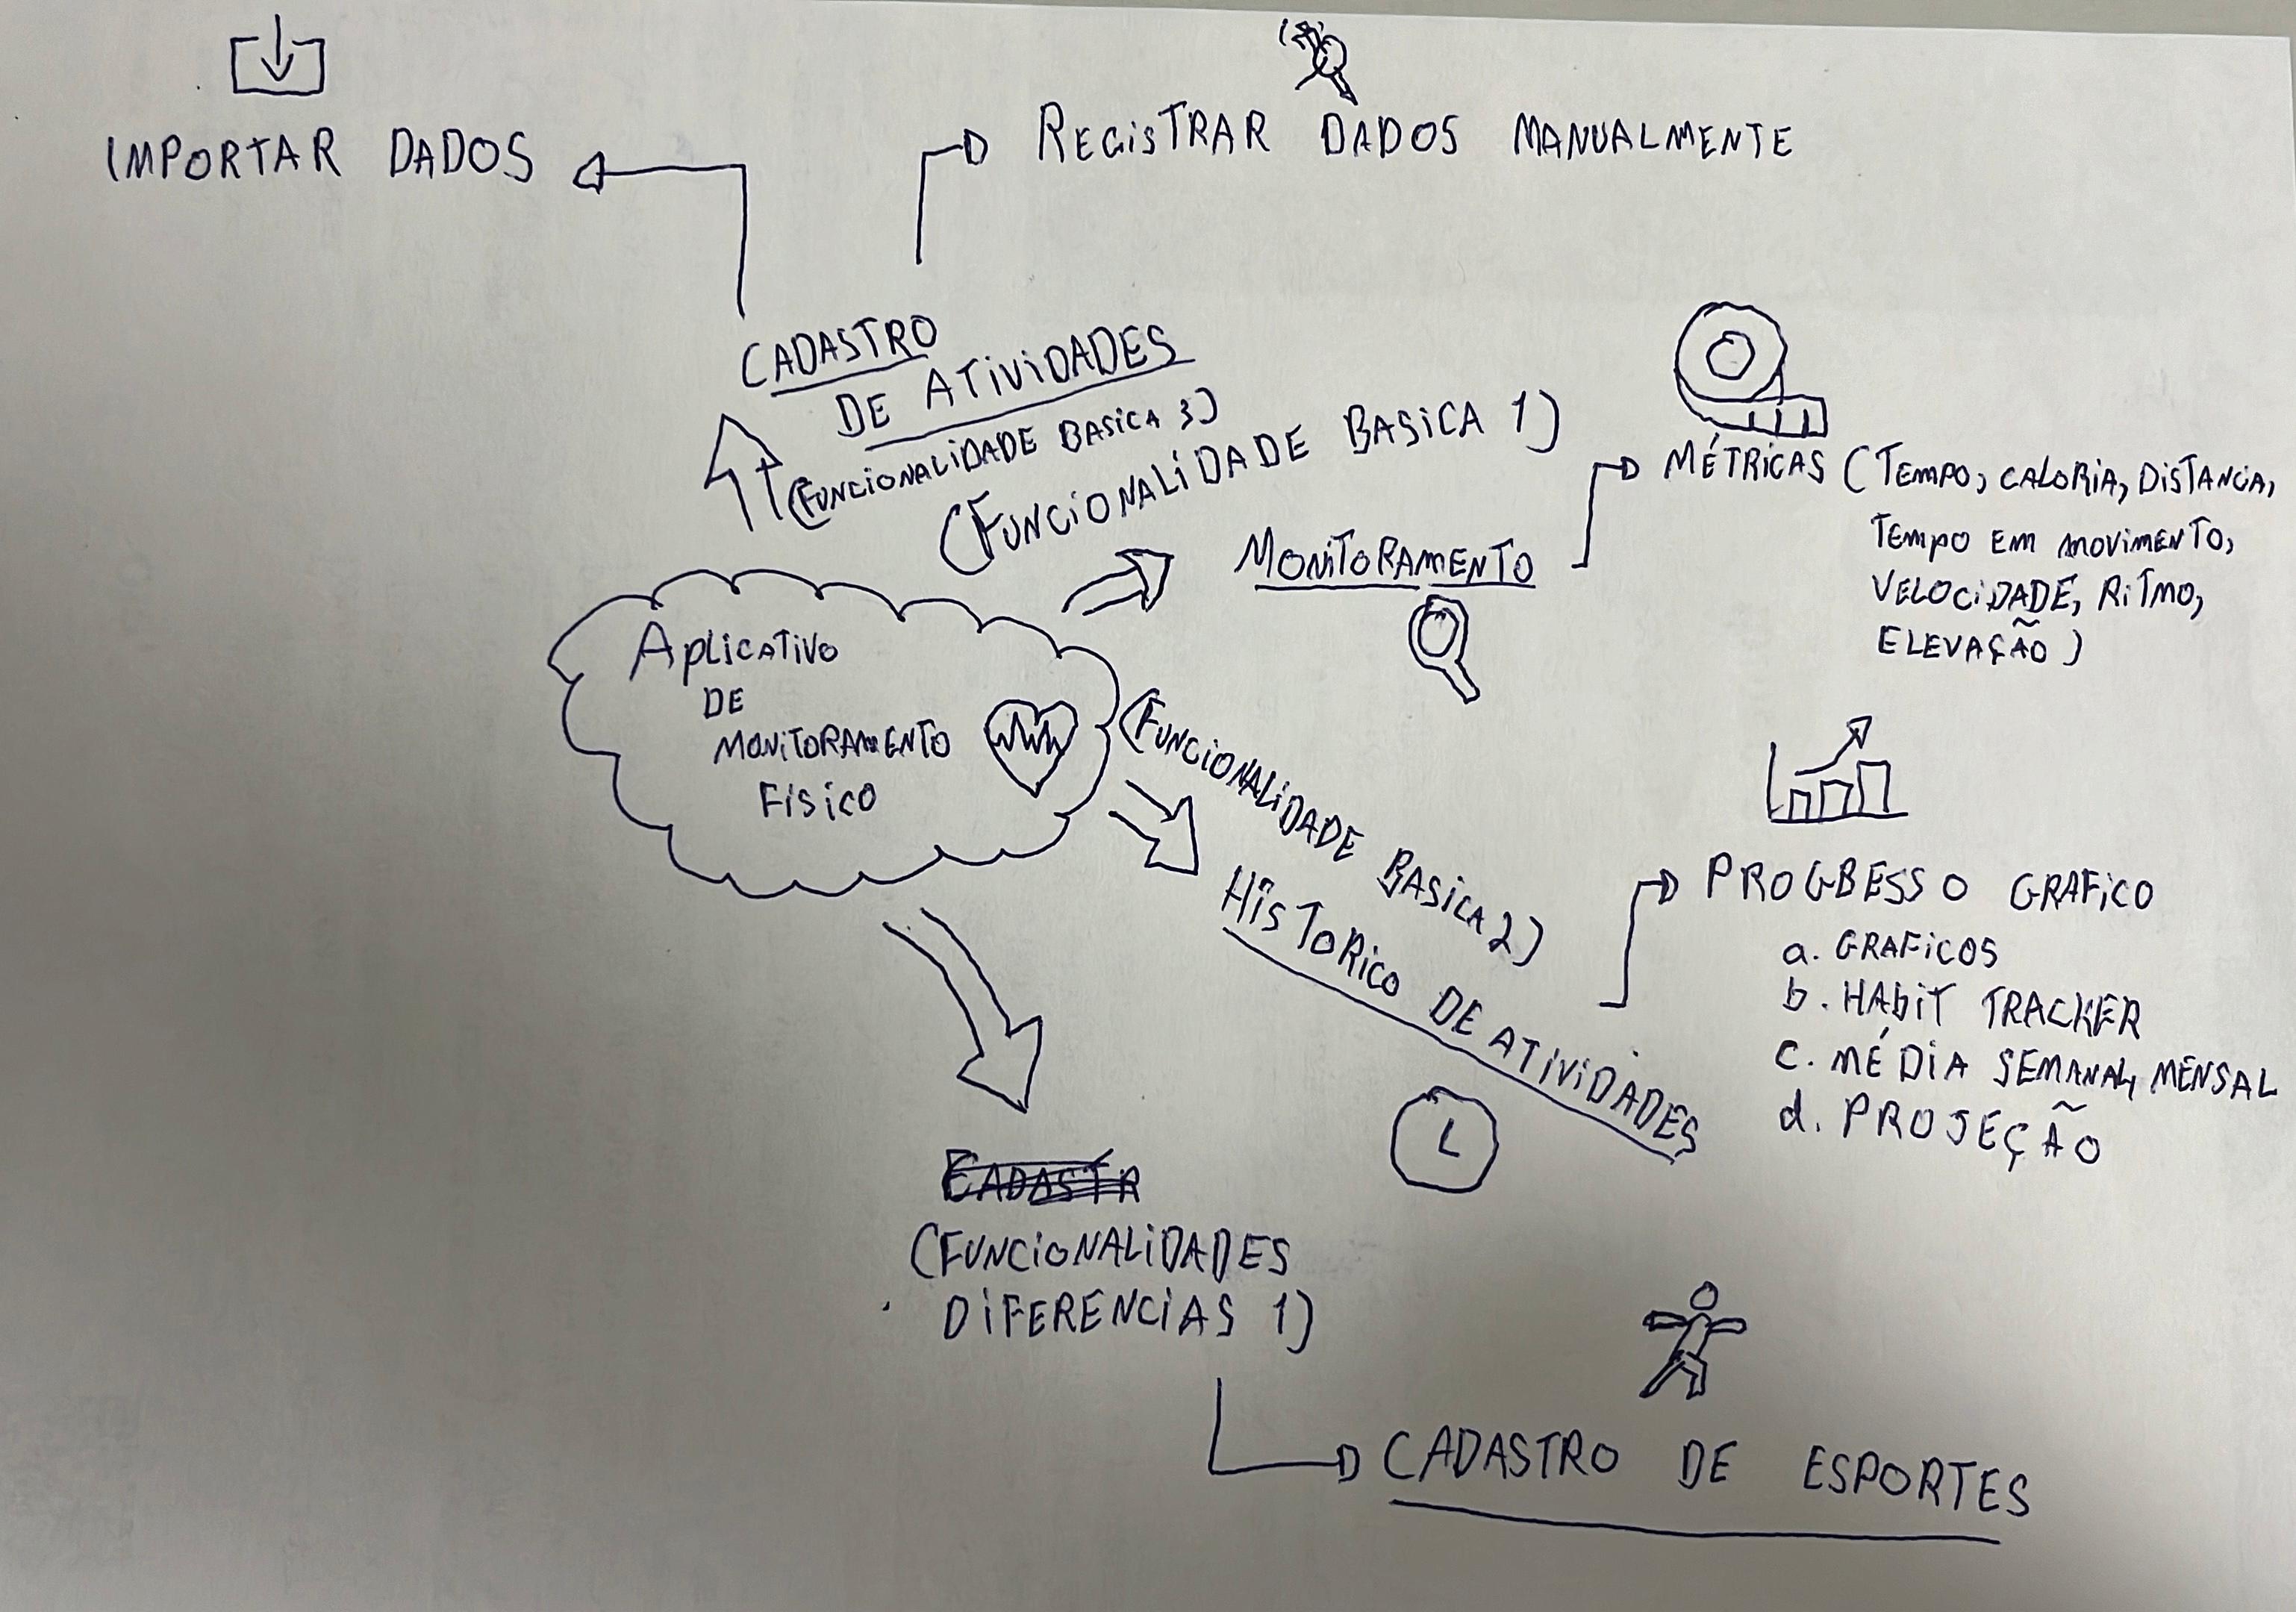 IMPORTAR DADOS
REGISTRAR DADOS MANUALMENTE
CADASTRO
DE ATIVIDADES
(FUNCIONALIDADE BASICA 3)
(FUNCIONALIDADE BASICA 1)
MONITORAMENTO
MÉTRICAS (TEMPO, CALORIA, DISTANCIA,
TEMPO EM MOVIMENTO,
VELOCIDADE, RITMO,
ELEVAÇÃO)
APLICATIVO
DE
MONITORAMENTO
FISICO
(FUNCIONALIDADE BASICA 2)
HISTORICO DE ATIVIDADES
PROGBESSO GRAFICO
a. GRAFICOS
b. HABIT TRACKER
c. MÉDIA SEMANAL, MENSAL
d. PROJEÇÃO
CADASTR
(FUNCIONALIDADES
DIFERENCIAS 1)
CADASTRO DE ESPORTES